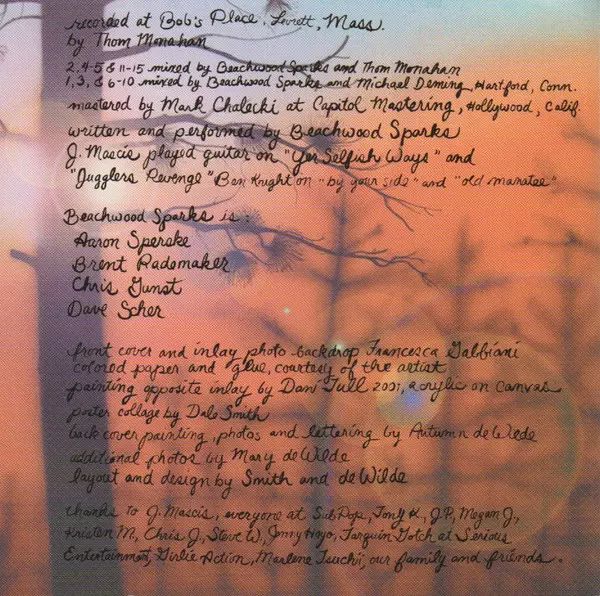 recorded at Bob's Place, Leverett, Mass.
by Thom Monahan
2, 4-5 & 11-15 mixed by Beachwood Sparks and Thom Monahan
1, 3, & 6-10 mixed by Beachwood Sparks and Michael Deming, Hartford, Conn.
mastered by Mark Chalecki at Capitol Mastering, Hollywood, Calif.
written and performed by Beachwood Sparks
J. Mascis played guitar on "Yer Selfish Ways" and
"Jugglers Revenge" Ben Knight on "by your side" and "old manatee"
Beachwood Sparks is:
Aaron Sperske
Brent Rademaker
Chris Gunst
Dave Scher
front cover and inlay photo backdrop Francesca Gabbiani
colored paper and glue, courtesy of the artist
painting opposite inlay by Dan Tull 2001, acrylic on canvas
poster collage by Dale Smith
back cover painting, photos and lettering by Autumn de Wilde
additional photos by Mary de Wilde
layout and design by Smith and de Wilde
thanks to J. Mascis, everyone at Sub Pop, Tony K., J.P., Megan J.,
Kristen M., Chris J., Steve W., Jenny Hoyo, Tarquin Gotch at Serious
Entertainment, Girlie Action, Marlene Tsuchii, our family and friends.